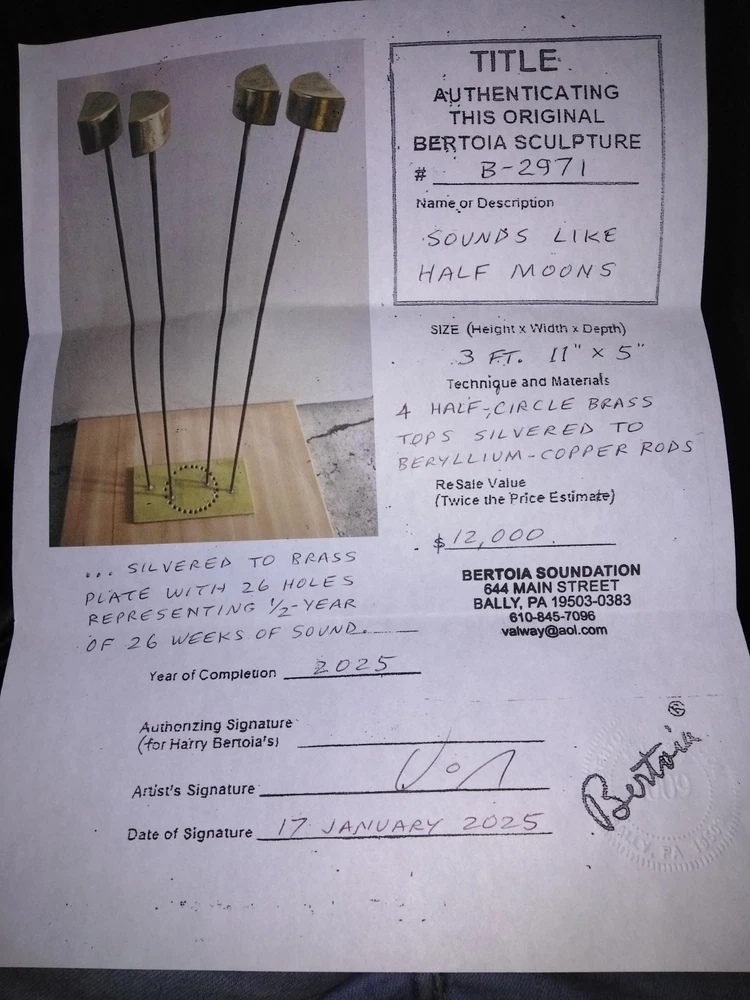 TITLE
AUTHENTICATING
THIS ORIGINAL
BERTOIA SCULPTURE
# B-2971
Name or Description
SOUNDS LIKE
HALF MOONS
SIZE (Height x Width x Depth)
3 FT. 11" x 5"
Technique and Materials
4 HALF-CIRCLE BRASS
TOPS SILVERED TO
BERYLLIUM-COPPER RODS
ReSale Value
(Twice the Price Estimate)
$ 12,000.
... SILVERED TO BRASS
PLATE WITH 26 HOLES
REPRESENTING 1/2-YEAR
OF 26 WEEKS OF SOUND.
BERTOIA SOUNDATION
644 MAIN STREET
BALLY, PA 19503-0383
610-845-7096
valway@aol.com
Year of Completion 2025
Authorizing Signature
(for Harry Bertoia's)
Artist's Signature
Date of Signature 17 JANUARY 2025
Bertoia ®
BALLY, PA